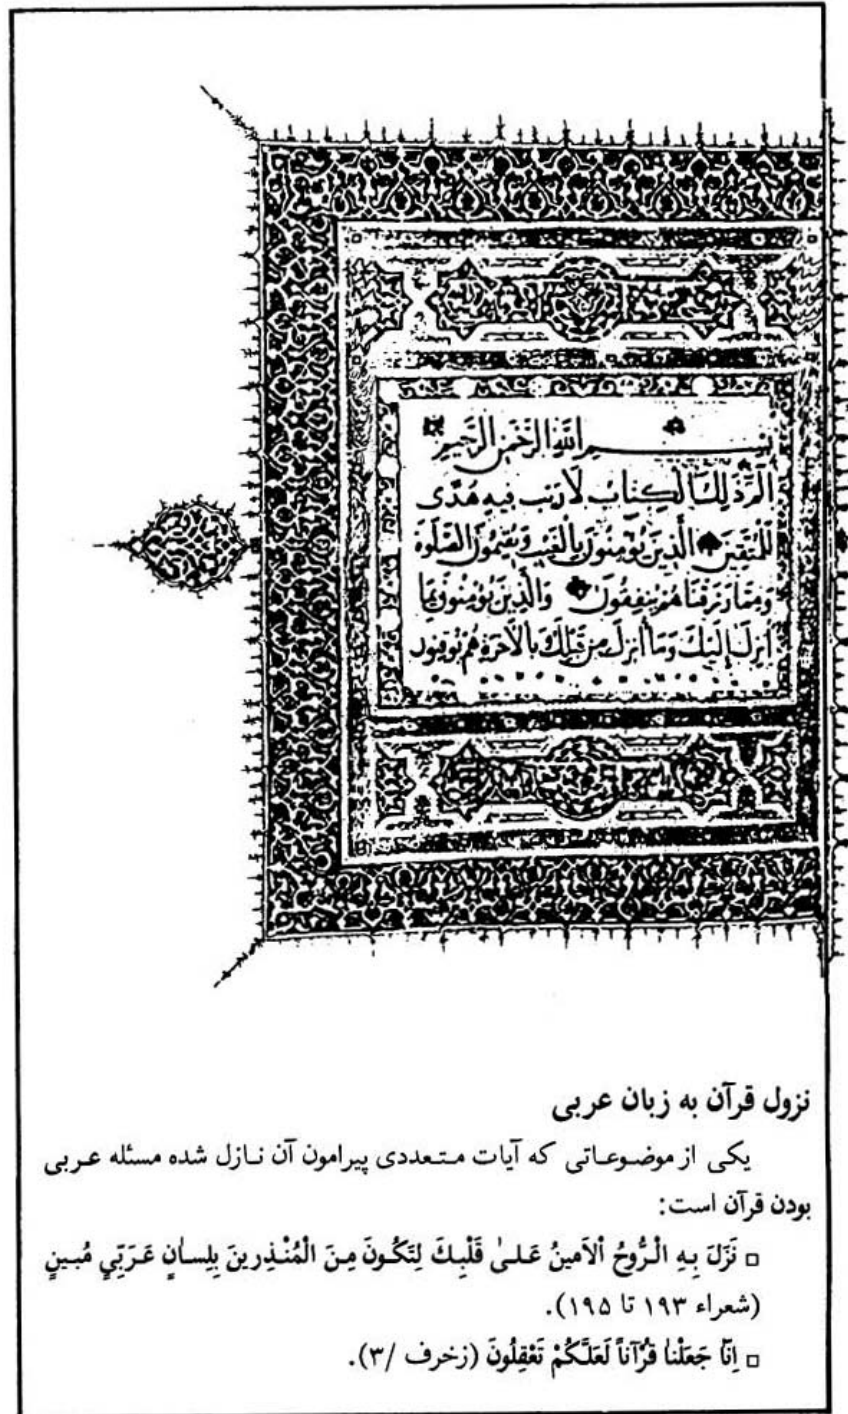 بسم الله الرحمن الرحيم
الم ذلك الكتاب لا ريب فيه هدى
للمتقين الذين يؤمنون بالغيب ويقيمون الصلوة
ومما رزقناهم ينفقون والذين يؤمنون بما
انزل اليك وما انزل من قبلك بالآخرة هم يوقنون
نزول قرآن به زبان عربی
یکی از موضوعاتی که آیات متعددی پیرامون آن نازل شده مسئله عربی
بودن قرآن است:
□ نَزَلَ بِهِ الْرُّوحُ اْلاَمینُ عَلىٰ قَلْبِكَ لِتَكُونَ مِنَ الْمُنْذِرینَ بِلِسانٍ عَرَبِّيٍ مُبینٍ
(شعراء ۱۹۳ تا ۱۹۵).
□ اِنّٰا جَعَلْنٰا قُرْآناً لَعَلَّكُمْ تَعْقِلُونَ (زخرف /۳).